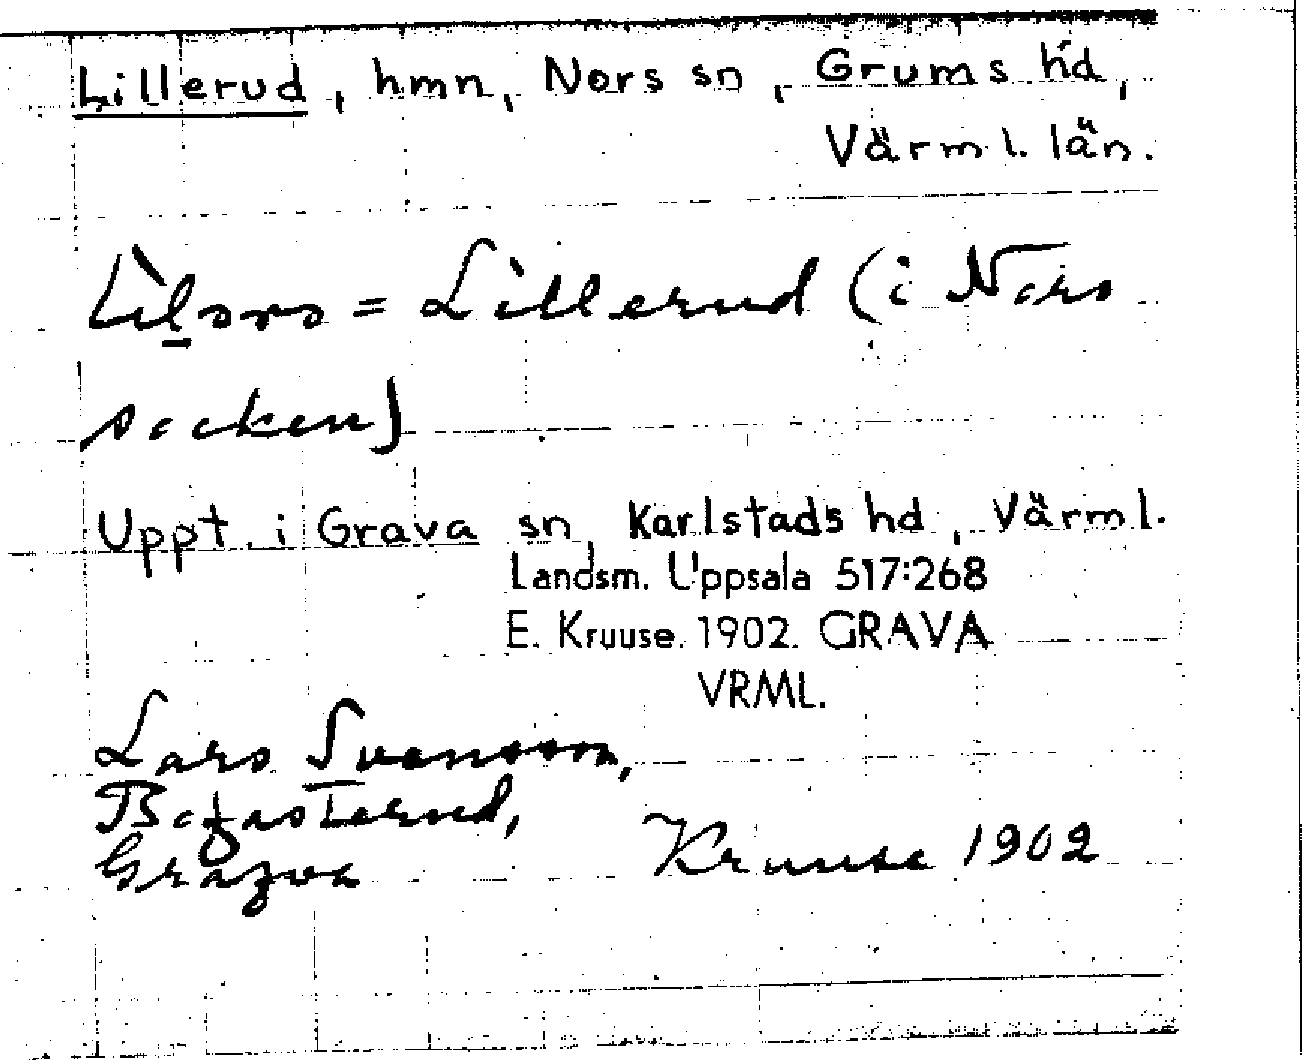 Lillerud, hmn, Nors sn, Grums hd,
Värml. län.
= Lillerud (i Nors
socken)
Uppt. i Grava sn, Karlstads hd, Värml.
Landsm. Uppsala 517:268
E. Kruuse. 1902. GRAVA
VRML.
Lars Svensson,
Kruuse 1902